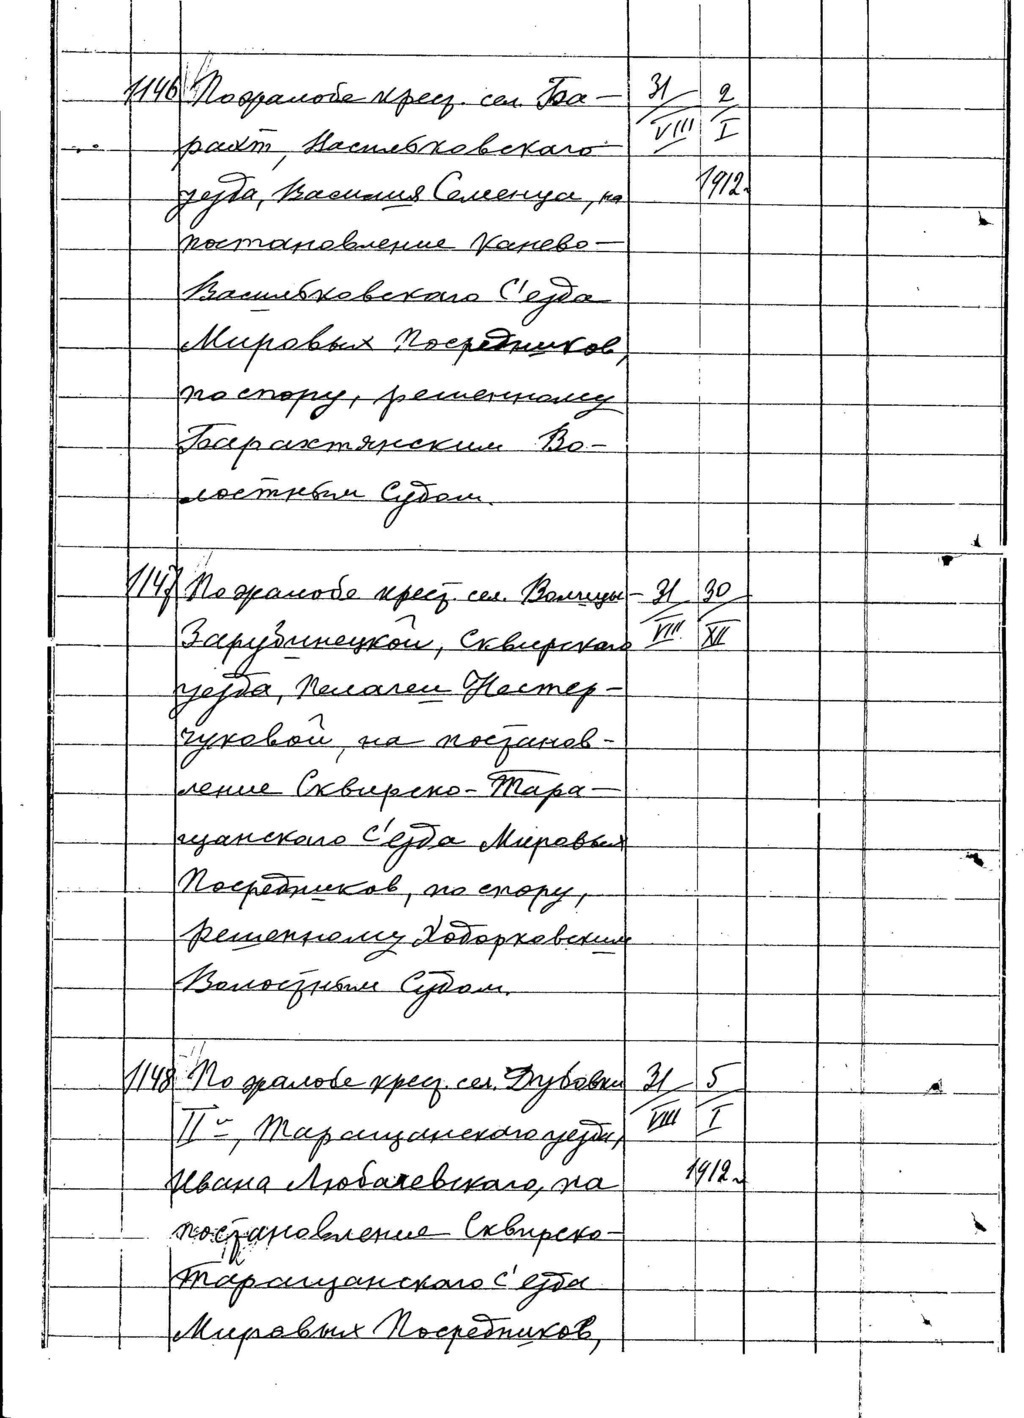 1146 По жалобе крест. сел. Ба- 31/VIII 2/I
рахт, Васильковскаго
уезда, Василия Семенца, на 1912г.
постановление Канево-
Васильковскаго С'езда
Мировых Посредников,
по спору, решенному
Барахтянским Во-
лостным Судом.
1147 По жалобе крест. сел. Волицы- 31/VIII 30/XII
Зарубинецкой, Сквирскаго
уезда, Пелагеи Нестер-
чуковой, на постанов-
ление Сквирско-Тара-
щанскаго С'езда Мировых
Посредников, по спору,
решенному Ходорковским
Волостным Судом.
1148 По жалобе крест. сел. Дубовки 31/VIII 5/I
IIй, Таращанскаго уезда,
Ивана Любачевскаго, на 1912г.
постановление Сквирско-
Таращанскаго С'езда
Мировых Посредников,